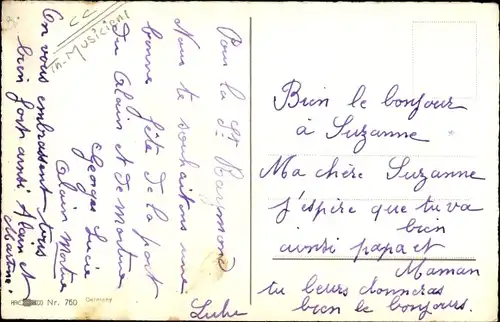 CC
Tn-Musiciens
Pour la St Raymond
Nous te souhaitons une
bonne fête de la part
du Alain et de Martine
Georges Lucie
Alain Martine
On vous embrassent tous
bien fort ainsi Alain et
Martine.
Nr. 750
Germany
Bien le bonjour
à Suzanne
Ma chère Suzanne
j'espère que tu va
bien
ainsi papa et
Maman
tu leurs donneras
bien le bonjours.